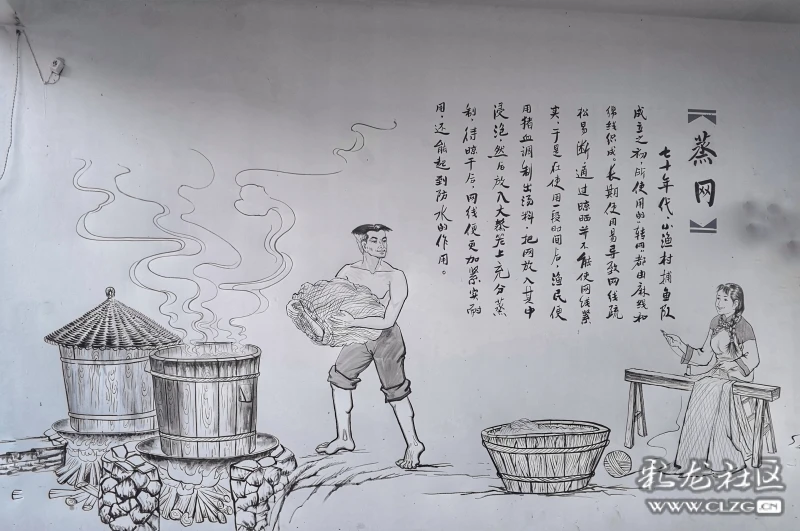 【蒸网】
七十年代,小渔村捕鱼队
成立之初,所使用的"转网"都由麻线和
绵线织成。长期使用易导致网线疏
松易断,通过晾晒并不能使网线紧
实,于是在使用一段时间后,渔民便
用猪血调制出汤料,把网放入其中
浸泡,然后放入大蒸笼上充分蒸
制,待晾干后,网线便更加紧实耐
用,还能起到防水的作用。
彩龙社区
WWW.CLZG.CN